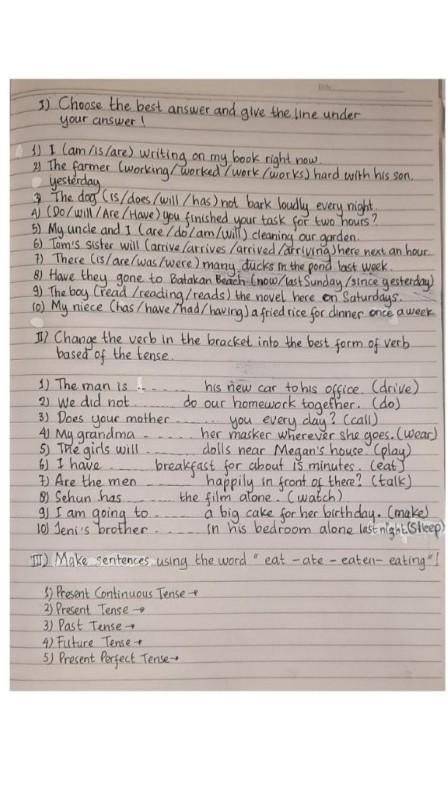 I) Choose the best answer and give the line under
your answer!
1) I (am/is/are) writing on my book right now.
2) The farmer (working/worked/work/works) hard with his son.
yesterday
3) The dog (is/does/will/has) not bark loudly every night.
4) (Do/will/Are/Have) you finished your task for two hours?
5) My uncle and I (are/do/am/will) cleaning our garden.
6) Tom's sister will (arrive/arrives/arrived/arriving) here next an hour
7) There (is/are/was/were) many ducks in the pond last week.
8) Have they gone to Batakan Beach (now/last Sunday/since yesterday)
9) The boy (read/reading/reads) the novel here on Saturdays.
10) My niece (has/have/had/having) a fried rice for dinner once a week
II) Change the verb in the bracket into the best form of verb
based of the tense.
1) The man is ....... his new car to his office. (drive)
2) We did not ....... do our homework together. (do)
3) Does your mother ....... you every day? (call)
4) My grandma ....... her masker wherever she goes. (wear)
5) The girls will ....... dolls near Megan's house. (play)
6) I have ....... breakfast for about 15 minutes. (eat)
7) Are the men ....... happily in front of there? (talk)
8) Sehun has ....... the film alone. (watch)
9) I am going to ....... a big cake for her birthday. (make)
10) Jeni's brother ....... in his bedroom alone last night. (sleep)
III) Make sentences using the word "eat - ate - eaten - eating"!
1) Present Continuous Tense →
2) Present Tense →
3) Past Tense →
4) Future Tense →
5) Present Perfect Tense →